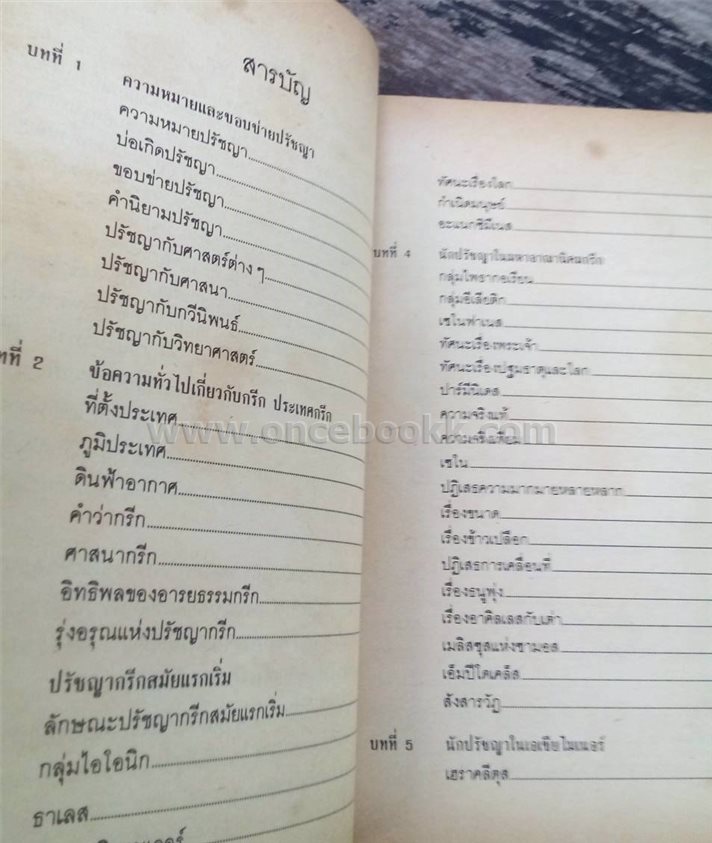 สารบัญ
บทที่ 1
ความหมายและขอบข่ายปรัชญา
ความหมายปรัชญา
บ่อเกิดปรัชญา
ขอบข่ายปรัชญา
คำนิยามปรัชญา
ปรัชญากับศาสตร์ต่าง ๆ
ปรัชญากับศาสนา
ปรัชญากับกวีนิพนธ์
ปรัชญากับวิทยาศาสตร์
ที่ 2
ข้อความทั่วไปเกี่ยวกับกรีก ประเทศกรีก
ที่ตั้งประเทศ
ภูมิประเทศ
ดินฟ้าอากาศ
คำว่ากรีก
ศาสนากรีก
อิทธิพลของอารยธรรมกรีก
รุ่งอรุณแห่งปรัชญากรีก
ปรัชญากรีกสมัยแรกเริ่ม
ลักษณะปรัชญากรีกสมัยแรกเริ่ม
กลุ่มไอโอนิก
ธาเลส
ทัศนะเรื่องโลก
กำเนิดมนุษย์
อะแนกซิมีเนส
บทที่ 4
นักปรัชญาในมหาอาณานิคมกรีก
กลุ่มไพธากอเรียน
กลุ่มอีเลียติก
เซโนฟาเนส
ทัศนะเรื่องพระเจ้า
ทัศนะเรื่องปฐมธาตุและโลก
ปาร์มีนิเดส
ความจริงแท้
ความจริงเทียม
เซโน
ปฏิเสธความมากมายหลายหลาก
เรื่องขนาด
เรื่องข้าวเปลือก
ปฏิเสธการเคลื่อนที่
เรื่องธนูพุ่ง
เรื่องอาคิลเลสกับเต่า
เมลิสซุสแห่งซามอส
เอ็มปีโดเคล็ส
สังสารวัฏ
บทที่ 5
นักปรัชญาในเอเชียไมเนอร์
เฮราคลีตุส
www.oncebookk.com